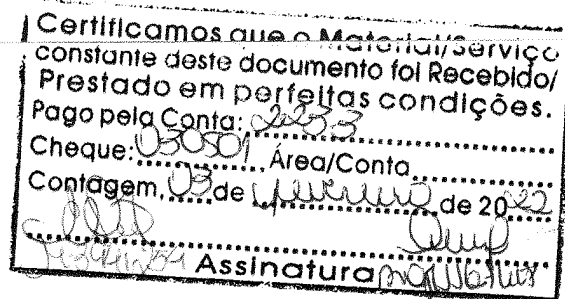 Certificamos que o Material/Serviço
constante deste documento foi Recebido/
Prestado em perfeitas condições.
Pago pela Conta: 2253-3
Cheque: 030501 Área/Conta
Contagem, 03 de fevereiro de 2022
Assinatura